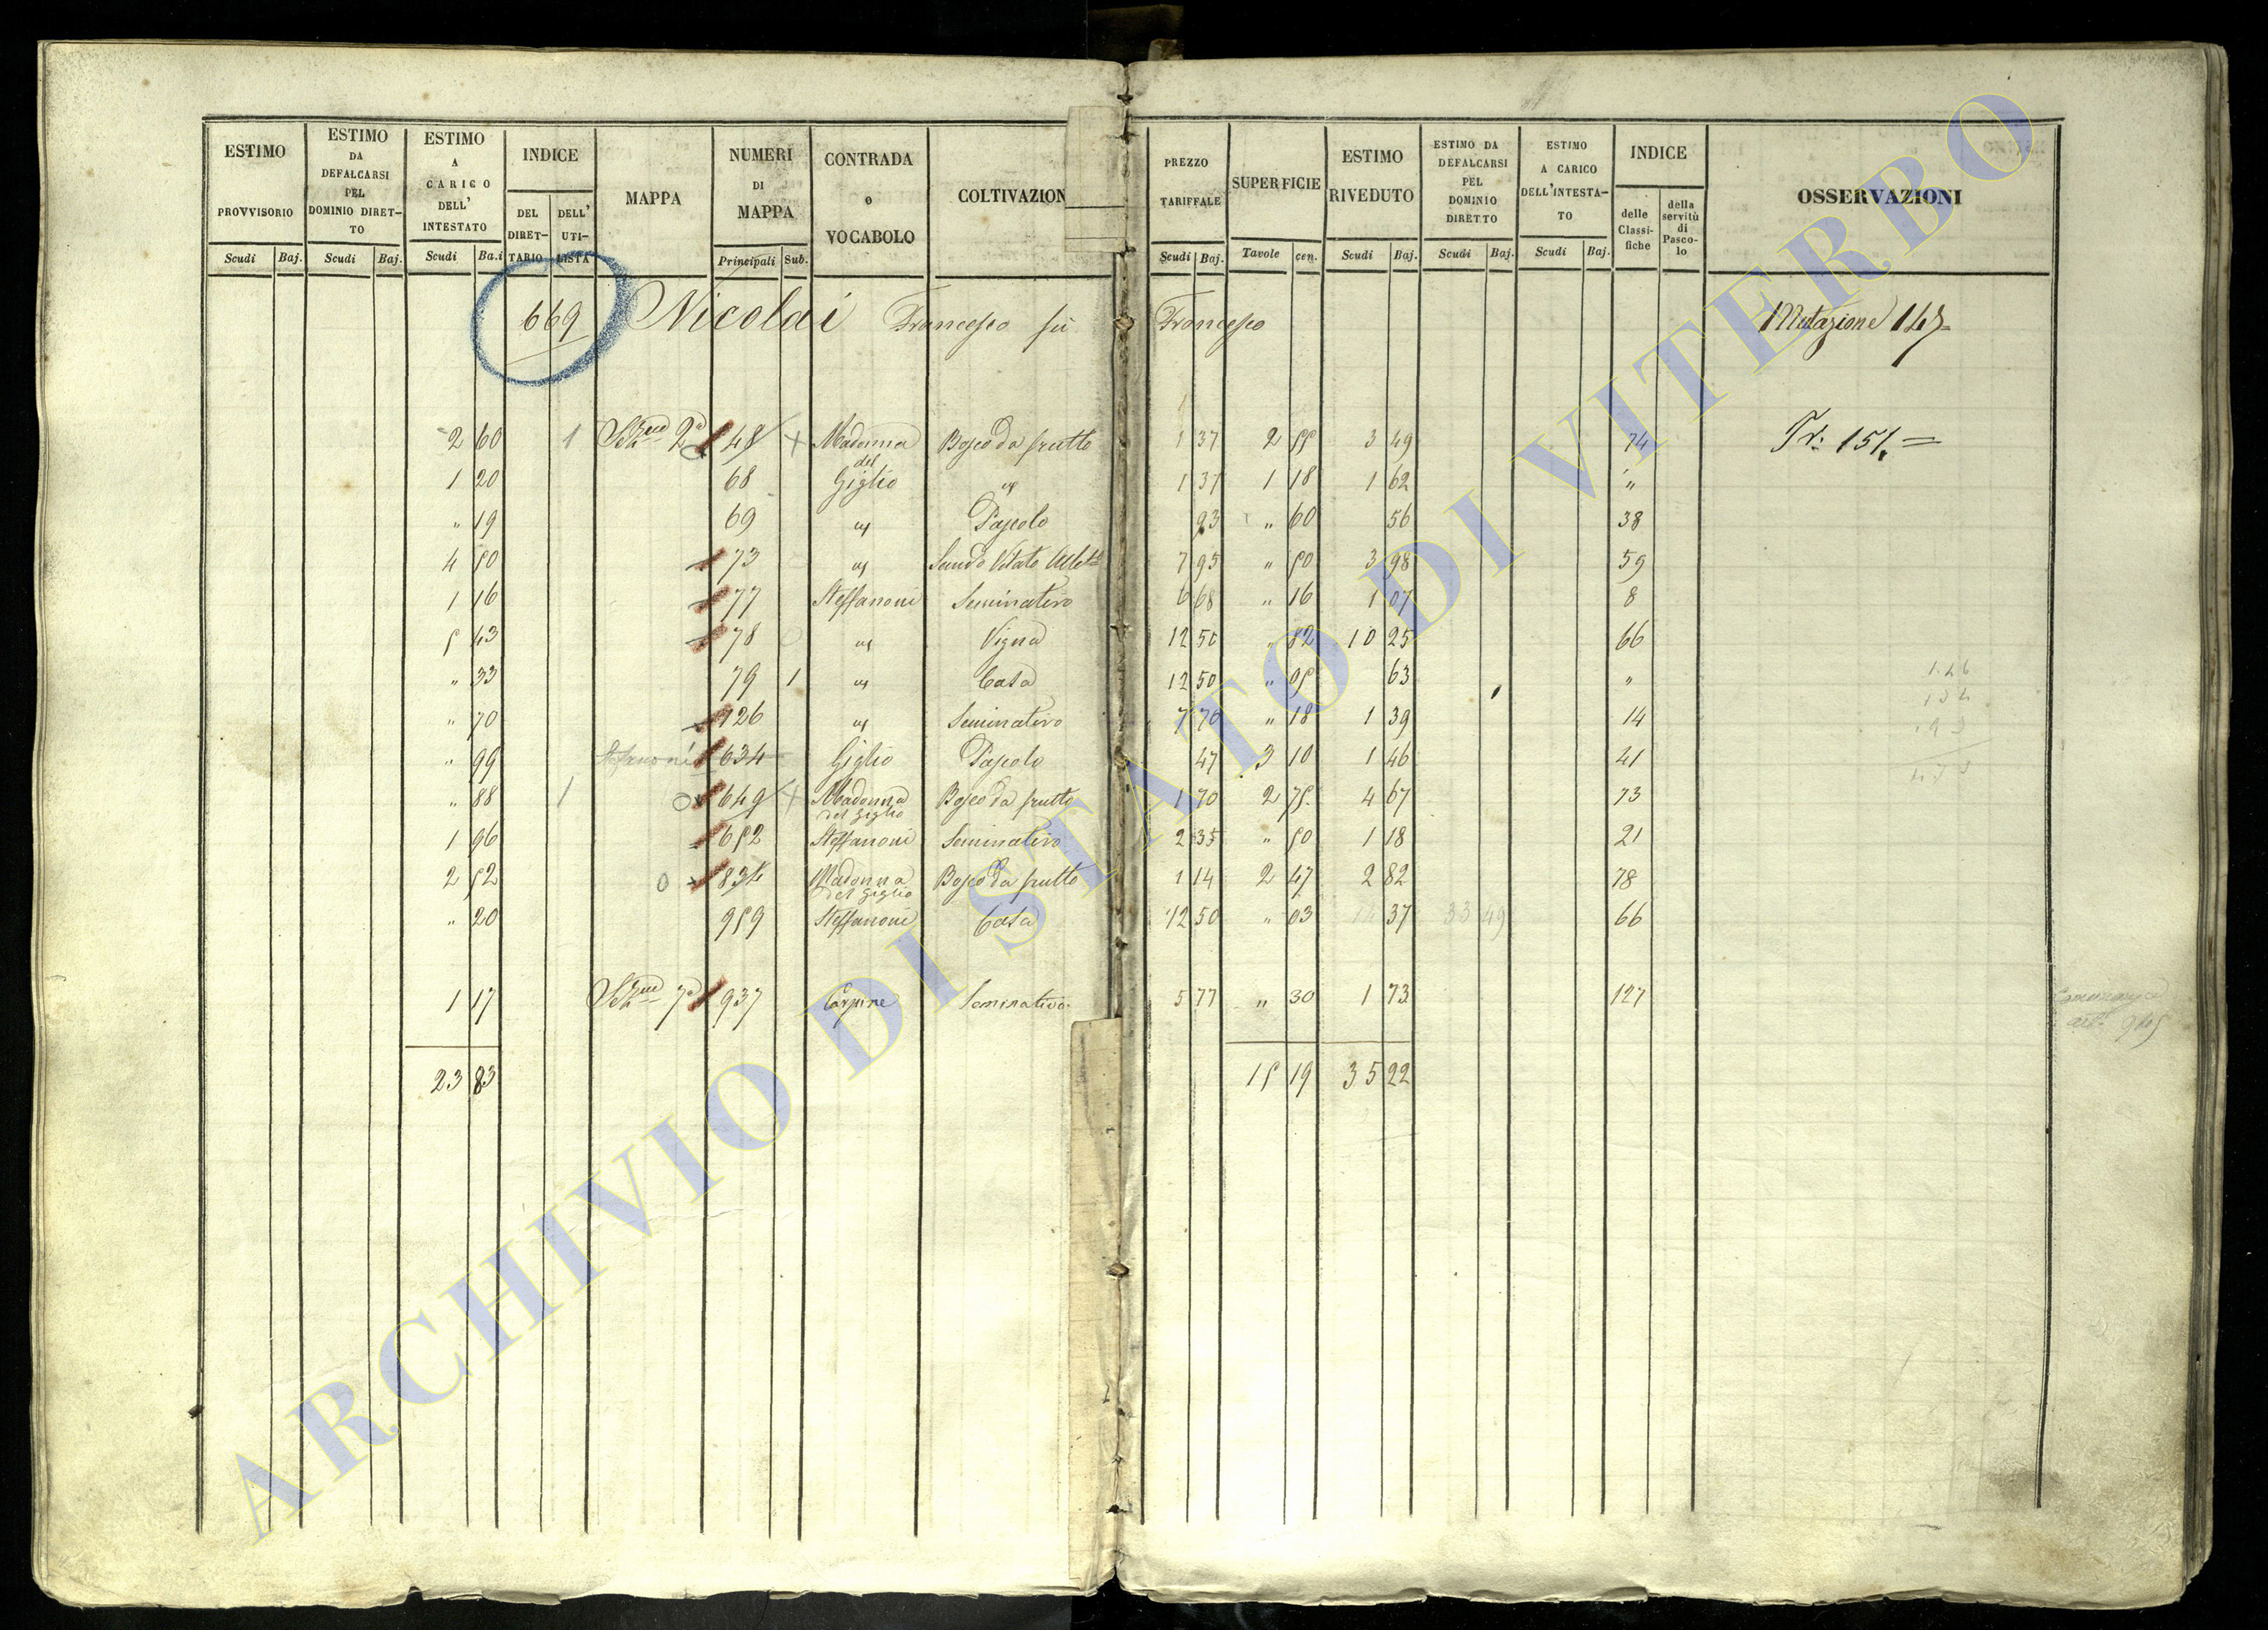 ESTIMO PROVVISORIO | ESTIMO DA DEFALCARSI PEL DOMINIO DIRETTO | ESTIMO A CARICO DELL' INTESTATO | INDICE DEL DIRETTARIO | DELL' UTILISTA | MAPPA | NUMERI DI MAPPA | CONTRADA o VOCABOLO | COLTIVAZION | PREZZO TARIFFALE | SUPERFICIE | ESTIMO RIVEDUTO | ESTIMO DA DEFALCARSI PEL DOMINIO DIRETTO | ESTIMO A CARICO DELL'INTESTATO | INDICE delle Classifiche | della servitù di Pascolo | OSSERVAZIONI
Scudi Baj. Scudi Baj. Scudi Ba.i Principali Sub. Scudi Baj. Tavole cen. Scudi Baj. Scudi Baj. Scudi Baj.
669 Nicolai Francesco fu Francesco Mutazione 147
2 60 1 2ª 48 + Madonna del Bosco da frutto 1 37 2 55 3 49 74 Tr: 151.=
1 20 68 Giglio " 1 37 1 18 1 62 "
" 19 69 " Pascolo 93 " 60 56 38
4 50 73 " Vitato 7 95 " 50 3 98 59
1 16 77 Steffanoni Seminativo 6 68 " 16 1 07 8
5 43 78 " Vigna 12 50 " 82 10 25 66
" 33 79 1 " Casa 12 50 " 05 63 "
" 70 126 " Seminativo 7 70 " 18 1 39 14
" 99 Stefanoni 634 Giglio Pascolo 47 3 10 1 46 41
" 88 1 649 + Madonna del Giglio Bosco da frutto 1 70 2 75 4 67 73
1 96 652 Steffanoni Seminativo 2 35 " 50 1 18 21
2 52 0 834 Madonna del Giglio Bosco da frutto 1 14 2 47 2 82 78
" 20 959 Steffanoni Casa 12 50 " 03 37 33 49 66
1 17 7ª 937 Carpine Seminativo 5 77 " 30 1 73 127
23 83 15 19 35 22
ARCHIVIO DI STATO DI VITERBO